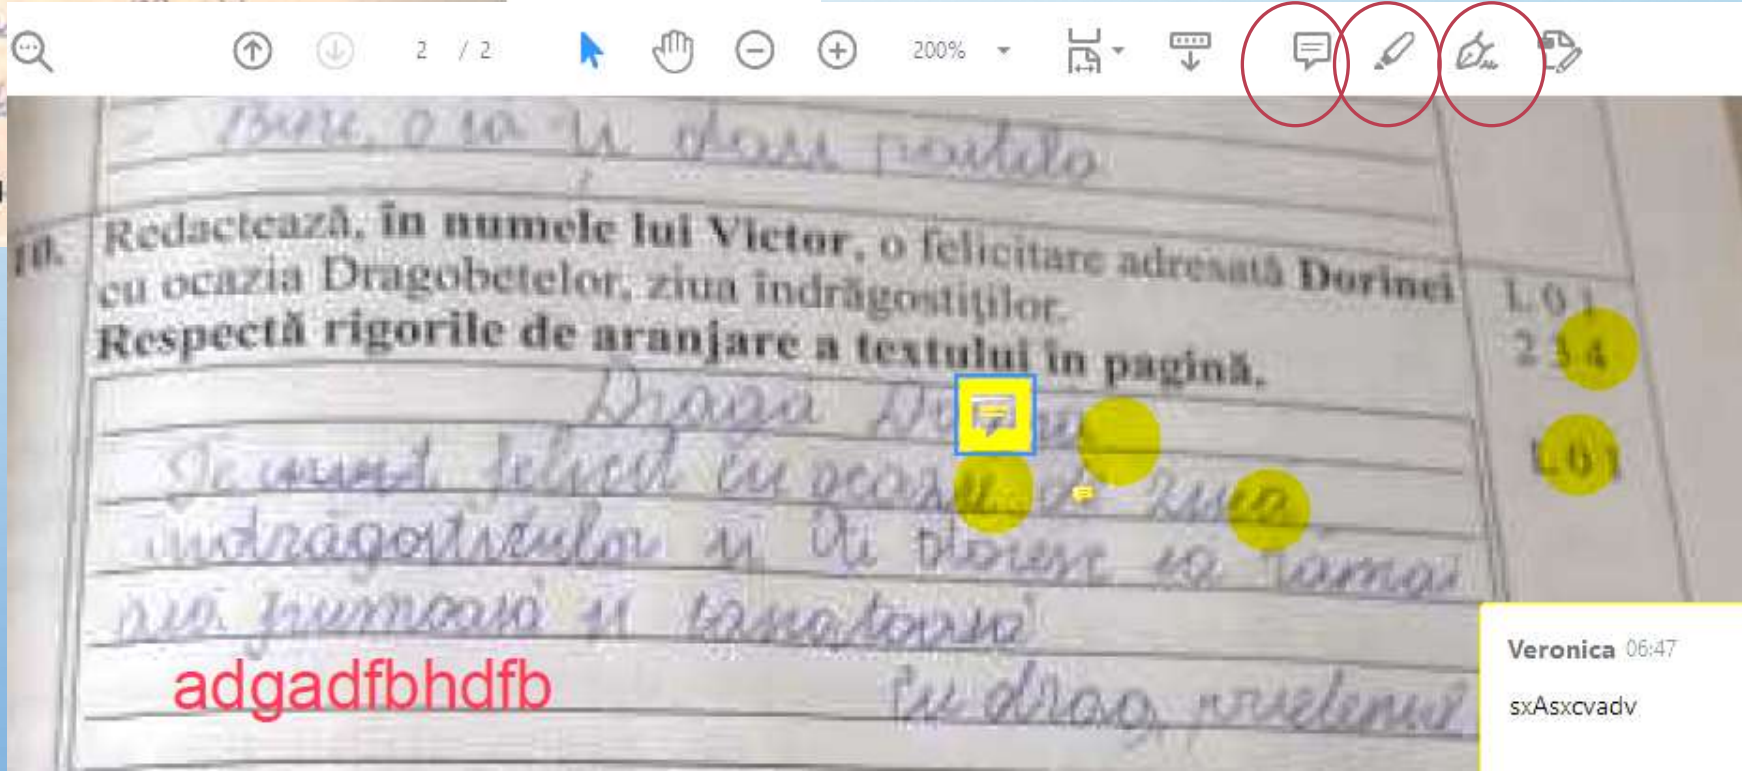 2 / 2 200%
Bine, o să ii
10. Redactează, în numele lui Victor, o felicitare adresată Dorinei
cu ocazia Dragobetelor, ziua îndrăgostiţilor.
Respectă rigorile de aranjare a textului în pagină.
L 0 1
2 3 4
L 0 1
Draga
felicit cu ocazia de ziua
indrăgostitulor si iti doresc sa ramai
asa frumoasa si sanatoasa
adgadfbhdfb
Cu drag, prietenul
Veronica 06:47
sxAsxcvadv